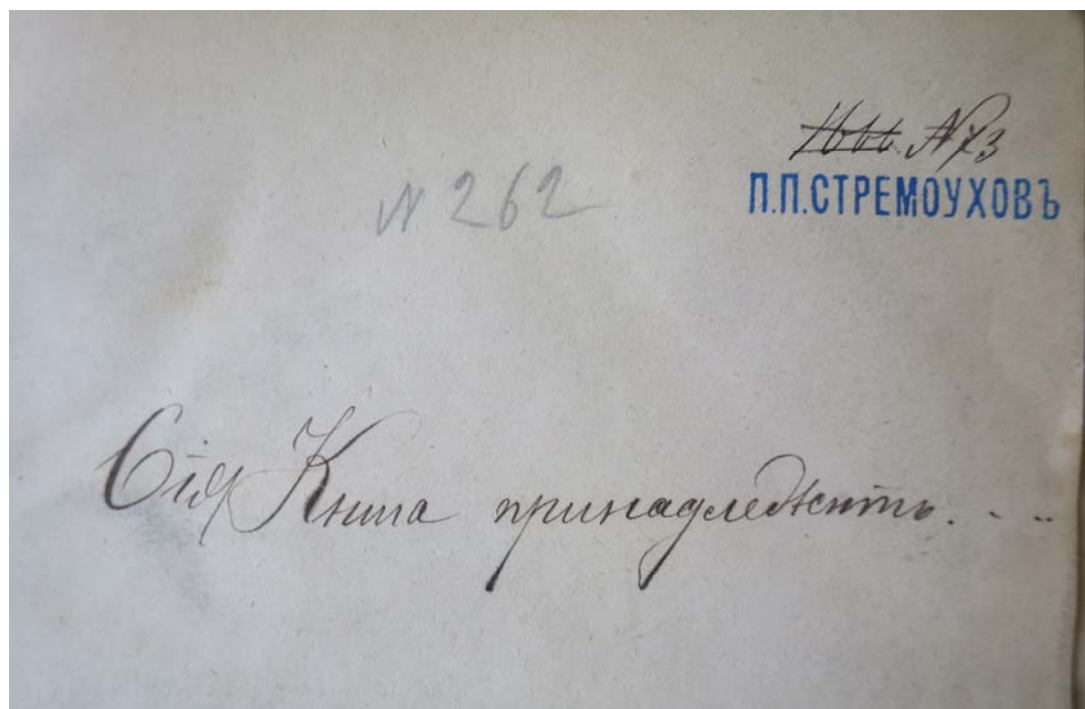 № 73
П.П.СТРЕМОУХОВЪ
N 262
Сія Книга принадлежитъ. . ..